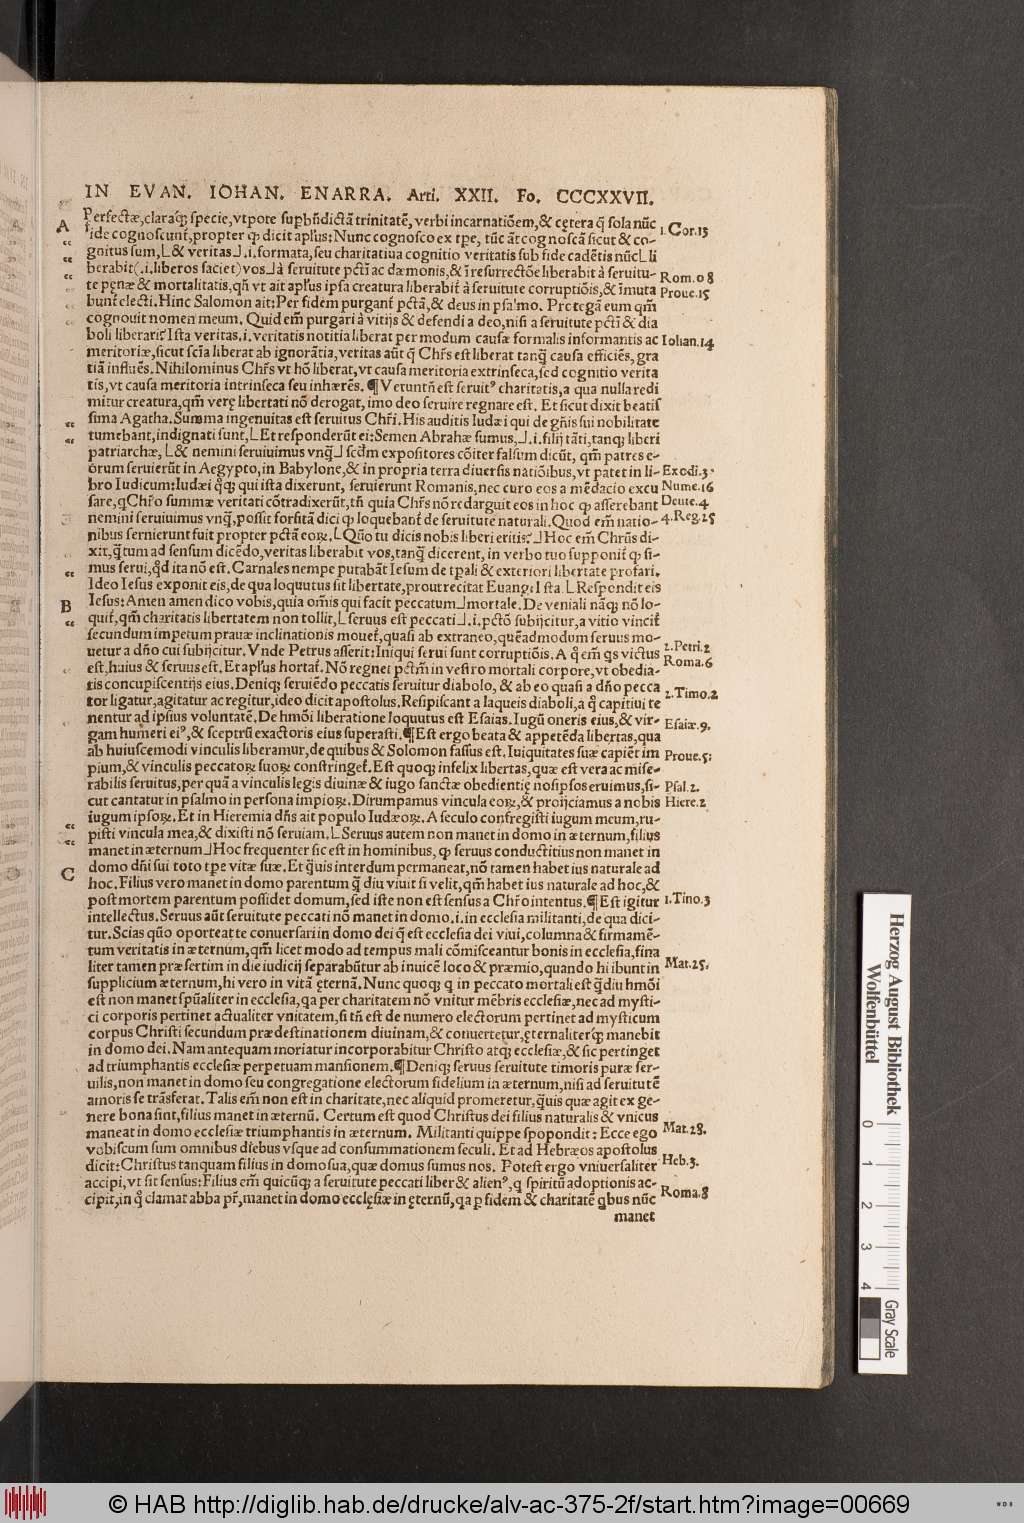 IN EVAN. IOHAN. ENARRA. Arti. XXII. Fo. CCCXXVII.
Perfectæ, claraq; specie, vtpote supbñdictā trinitatē, verbi incarnatiõem, & cętera q̃ sola nūc
fide cognoscunt̃, propter qp dicit apl̃us: Nunc cognosco ex tpe, tūc ãt cognoscã sicut & co-
gnitus sum, L& veritas⅃.i.formata, seu charitatiua cognitio veritatis sub fide cadētis nūcLli
berabit(.i.liberos faciet)vos⅃à seruitute pctī ac dæmonis, & ī resurrectõe liberabit à seruitu-
te pęnæ & mortalitatis, qñ vt ait apl̃us ipsa creatura liberabit̃ à seruitute corruptiõis, & īmuta
bunt̃ electi. Hinc Salomon ait: Per fidem purgant̃ pctã, & deus in psalmo. Protegã eum qm̃
cognouit nomen meum. Quid em̃ purgari à vitijs & defendi a deo, nisi a seruitute pcti & dia
boli liberari? Ista veritas.i.veritatis notitia liberat per modum causæ formalis informantis ac
meritoriæ, sicut scīa liberat ab ignorãtia, veritas aūt q̃ Chr̃s est liberat tanq̃ causa efficiēs, gra
tiã influēs. Nihilominus Chr̃s vt hõ liberat, vt causa meritoria extrinseca, sed cognitio verita
tis, vt causa meritoria intrinseca seu inhærēs. ¶ Veruntñ est seruitꝰ charitatis, a qua nulla redi
mitur creatura, qm̃ verę libertati nõ derogat, imo deo seruire regnare est. Et sicut dixit beatis
sima Agatha. Summa ingenuitas est seruitus Chr̃i. His auditis Iudæi qui de gñis sui nobilitate
tumebant, indignati sunt, LEt responderūt ei: Semen Abrahæ sumus,⅃.i.filij tãti, tanq; liberi
patriarchæ, L& nemini seruiuimus vnq̃⅃ scdm expositores cõiter falsum dicūt, qm̃ patres e-
orum seruierūt in Aegypto, in Babylone, & in propria terra diuersis natiõibus, vt patet in li-
bro Iudicum: Iudæi q̃q; qui ista dixerunt, seruierunt Romanis, nec curo eos a mēdacio excu
sare, q Chr̃o summæ veritati cõtradixerūt, tñ quia Chr̃s nõ redarguit eos in hoc qp asserebant
nemini seruiuimus vnq̃, possit forsitã dici qp loquebant̃ de seruitute naturali. Quod em̃ natio-
nibus sernierunt fuit propter pctã eoꝝ. LQūo tu dicis nobis liberi eritis?⅃Hoc em̃ Chrūs di-
xit, q̃tum ad sensum dicēdo, veritas liberabit vos, tanq̃ dicerent, in verbo tuo supponit̃ qp si-
mus serui, q̃d ita nõ est. Carnales nempe putabãt Iesum de tpali & exteriori libertate profari.
Ideo Iesus exponit eis, de qua loquutus sit libertate, prout recitat Euang: Ista. LRespondit eis
Iesus: Amen amen dico vobis, quia om̃is qui facit peccatum⅃mortale. De veniali nãq; nõ lo-
quit̃, qm̃ charitatis libertatem non tollit, Lseruus est peccati⅃.i.pctõ subijcitur, a vitio vincit̃
secundum impetum prauæ inclinationis mouet̃, quasi ab extraneo, quēadmodum seruus mo-
uetur a dño cui subijcitur. Vnde Petrus asserit: Iniqui serui sunt corruptiõis. A q̃ em̃ qs victus
est, huius & seruus est. Et apl̃us hortat̃. Nõ regnet pctm̃ in vestro mortali corpore, vt obedia-
tis concupiscentijs eius. Deniq; seruiēdo peccatis seruitur diabolo, & ab eo quasi a dño pecca
tor ligatur, agitatur ac regitur, ideo dicit apostolus. Resipiscant a laqueis diaboli, a q̃ captiui te
nentur ad ipsius voluntatē. De hmõi liberatione loquutus est Esaias. Iugū oneris eius, & vir-
gam humeri eiꝰ, & sceptrū exactoris eius superasti. ¶Est ergo beata & appetēda libertas, qua
ab huiuscemodi vinculis liberamur, de quibus & Solomon fassus est. Iuiquitates suæ capiēt im
pium, & vinculis peccatoꝝ suoꝝ constringet̃. Est quoq; infelix libertas, quæ est vera ac mise-
rabilis seruitus, per quã a vinculis legis diuinæ & iugo sanctæ obedientię nosipsos eruimus, si-
cut cantatur in psalmo in persona impioꝝ. Dirumpamus vincula eoꝝ, & proijciamus a nobis
iugum ipsoꝝ. Et in Hieremia dñs ait populo Iudæoꝝ. A seculo confregisti iugum meum, ru-
pisti vincula mea, & dixisti nõ seruiam. LSeruus autem non manet in domo in æternum, filius
manet in æternum⅃Hoc frequenter sic est in hominibus, qp seruus conductitius non manet in
domo dñi sui toto tpe vitæ suæ. Et q̃uis interdum permaneat, nõ tamen habet ius naturale ad
hoc. Filius vero manet in domo parentum q̃ diu viuit si velit, qm̃ habet ius naturale ad hoc, &
post mortem parentum possidet domum, sed iste non est sensus a Chr̃o intentus. ¶Est igitur
intellectus. Seruus aūt seruitute peccati nõ manet in domo.i.in ecclesia militanti, de qua dici-
tur. Scias qūo oporteat te conuersari in domo dei q̃ est ecclesia dei viui, columna & firmamē-
tum veritatis in æternum, qm̃ licet modo ad tempus mali cõmisceantur bonis in ecclesia, fina
liter tamen præsertim in die iudicij separabūtur ab inuicē loco & præmio, quando hi ibunt in
supplicium æternum, hi vero in vitã ęternã. Nunc quoq; q in peccato mortali est q̃diu hmõi
est non manet spūaliter in ecclesia, qa per charitatem nõ vnitur mēbris ecclesiæ, nec ad mysti-
ci corporis pertinet actualiter vnitatem, si tñ est de numero electorum pertinet ad mysticum
corpus Christi secundum prædestinationem diuinam, & conuertetur, ęternaliterq; manebit
in domo dei. Nam antequam moriatur incorporabitur Christo atq; ecclesiæ, & sic pertinget
ad triumphantis ecclesiæ perpetuam mansionem. ¶Deniq; seruus seruitute timoris puræ ser-
uilis, non manet in domo seu congregatione electorum fidelium in æternum, nisi ad seruitutē
amoris se trãsferat. Talis em̃ non est in charitate, nec aliquid promeretur, q̃uis quæ agit ex ge-
nere bona sint, filius manet in æternū. Certum est quod Christus dei filius naturalis & vnicus
maneat in domo ecclesiæ triumphantis in æternum. Militanti quippe spopondit: Ecce ego
vobiscum sum omnibus diebus vsque ad consummationem seculi. Et ad Hebræos apostolus
dicit: Christus tanquam filius in domo sua, quæ domus sumus nos. Potest ergo vniuersaliter
accipi, vt sit sensus: Filius em̃ quicūq; a seruitute peccati liber & alienꝰ, q spiritū adoptionis ac-
cipit, in q̃ clamat abba pr̃, manet in domo ecclęsiæ in ęternū, qa p fidem & charitatē qbus nūc
manet
A
B
C
1.Cor.13
Rom.08
Proue.15
Iohan.14
Exodi.3
Nume.16
Deute.4
4.Reg.25
2.Petri.2
Roma.6
2.Timo.2
Esaiæ.9.
Proue.5:
Psal.2.
Hiere.2
1.Tino.3
Mat.25:
Mat.28.
Heb.3.
Roma.8
Herzog August Bibliothek
Wolfenbüttel
0 1 2 3 4
Gray Scale
© HAB http://diglib.hab.de/drucke/alv-ac-375-2f/start.htm?image=00669